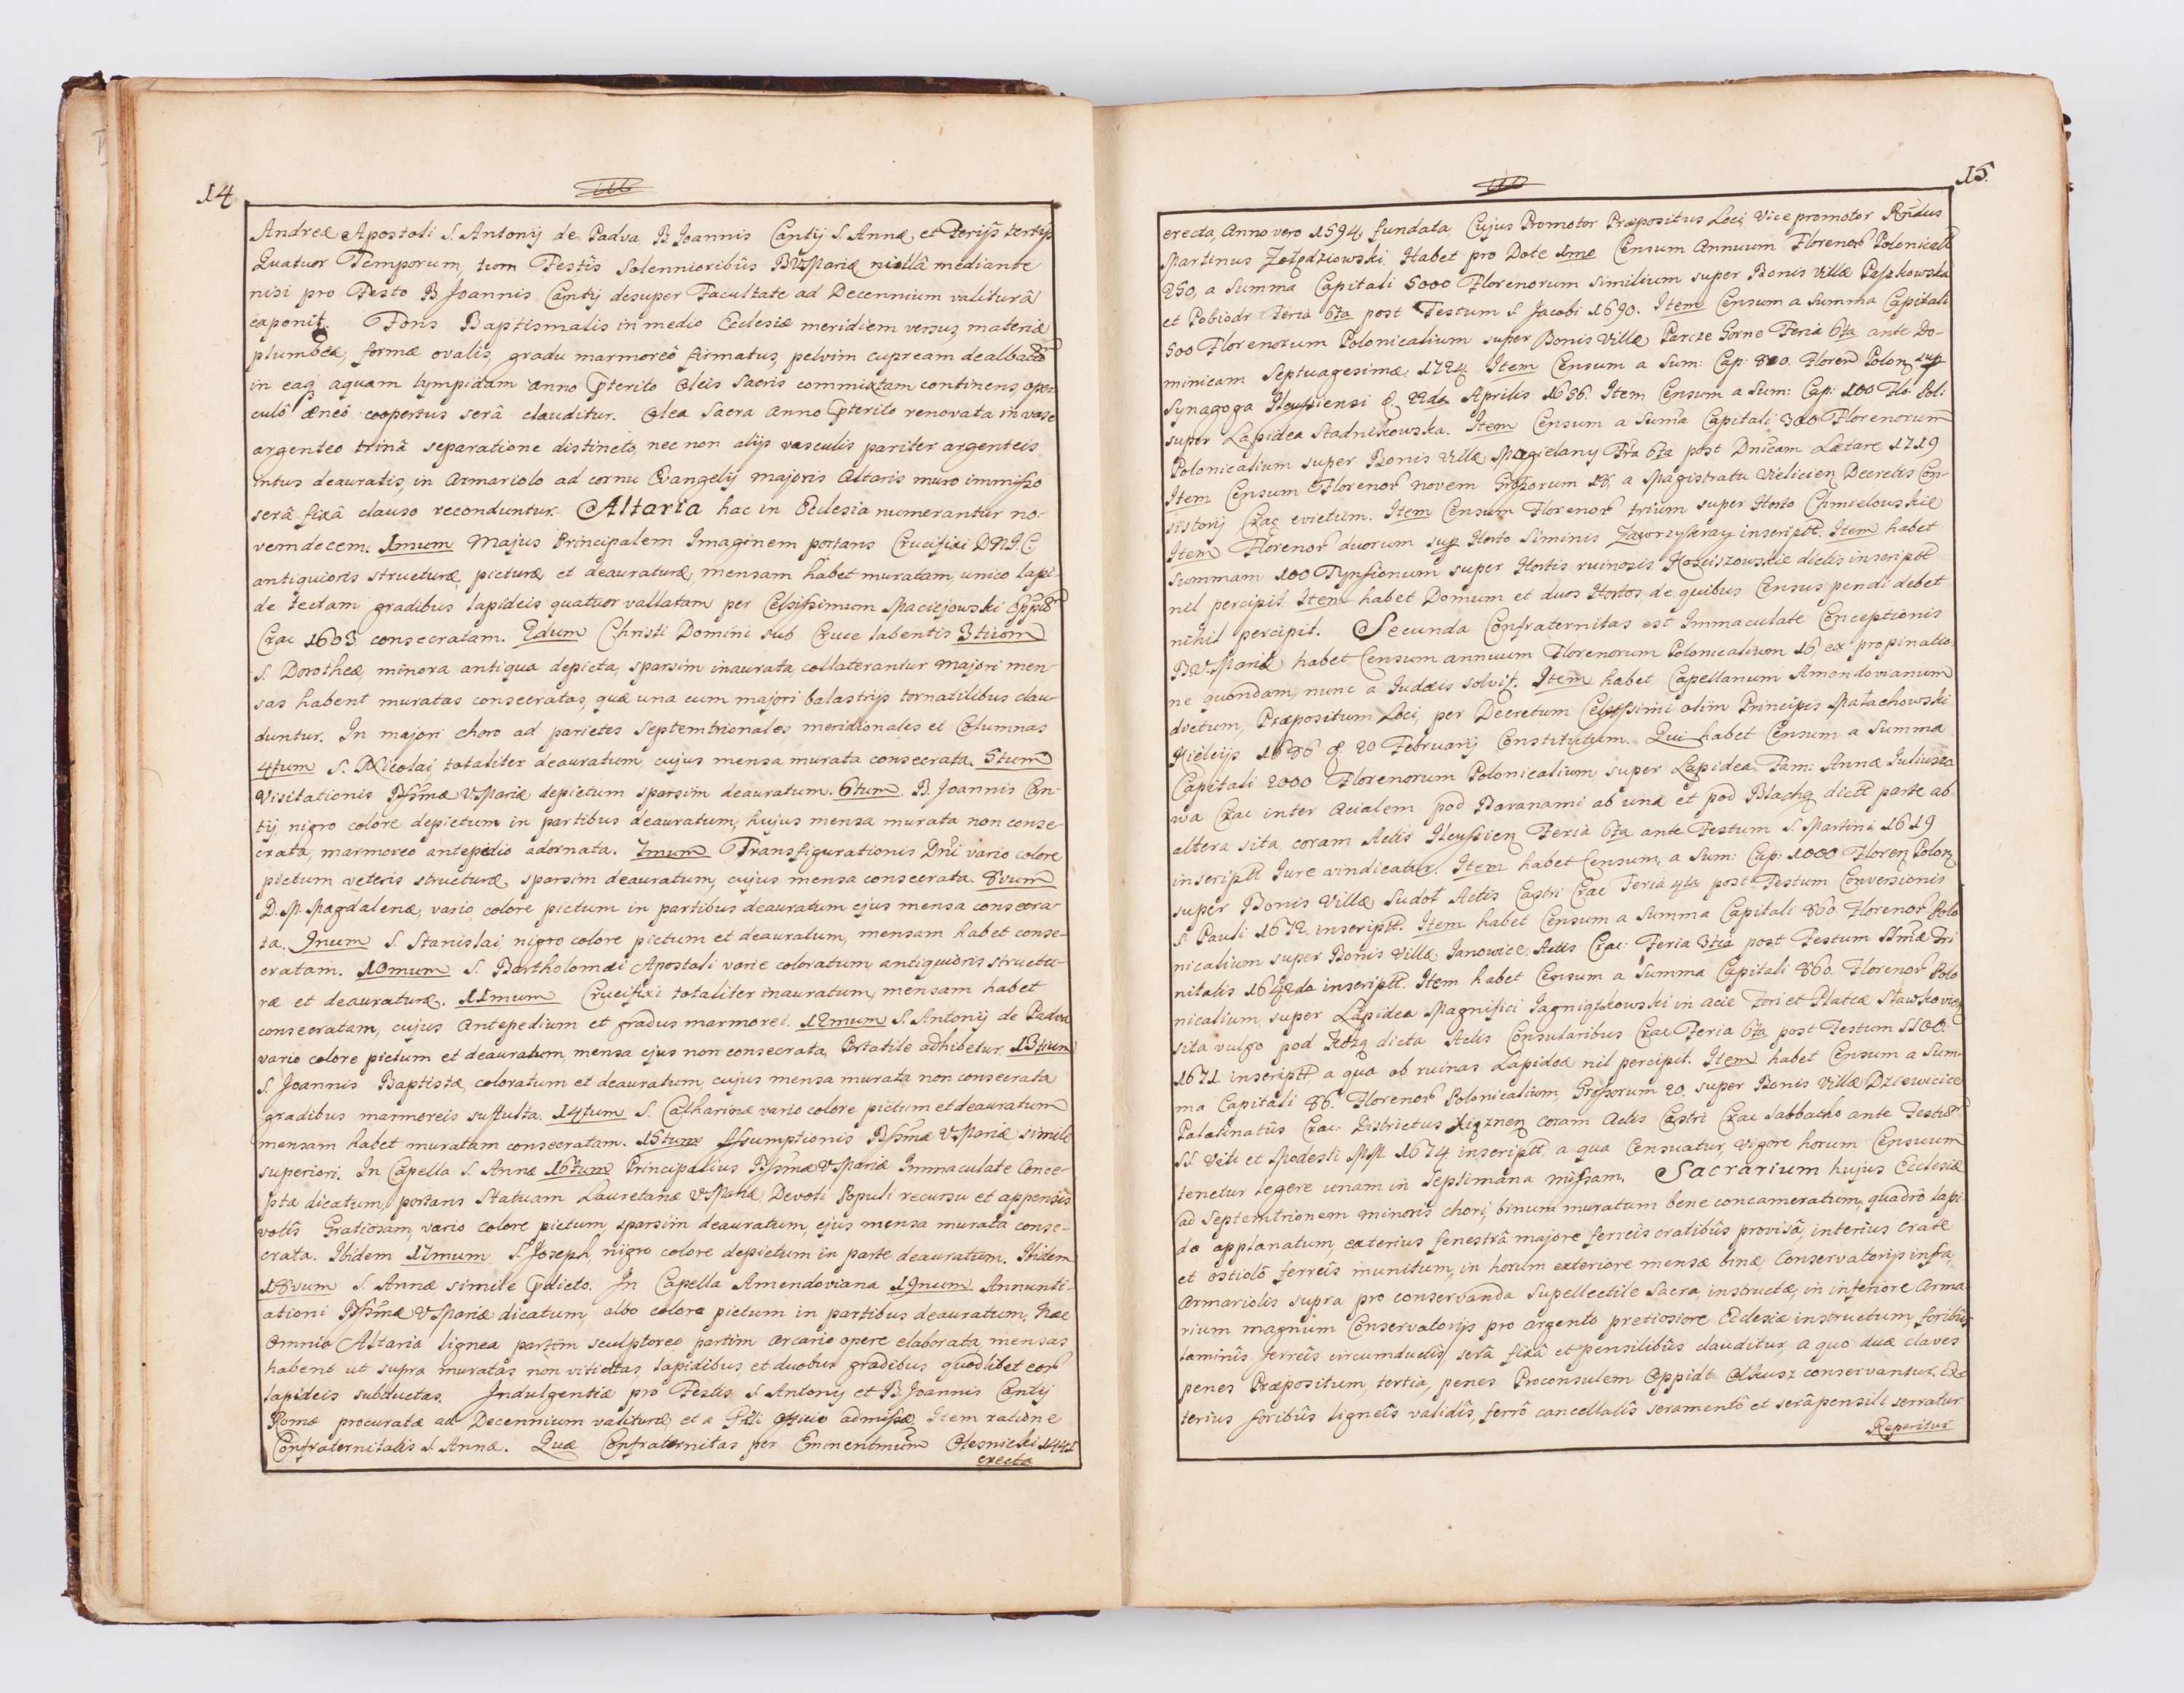 14
Andreæ Apostoli S. Antonij de Padva, B. Joannis Cantij S. Annæ, et Ferijs tertijs
Quatuor Temporum, tum Festis Solennioribus BVMariæ nullâ mediante
nisi pro Festo B. Joannis Cantij desuper Facultate ad Decennium valiturâ
exponit. Fons Baptismalis in medio Ecclesiæ meridiem versus, materiæ
plumbeæ, formæ ovalis, gradu marmoreô firmatus, pelvim cupream dealbatā
in eaq aquam lympidam anno pterito Oleis Sacris commixtam continens, oper
culô æneô coopertus serâ clauditur. Olea Sacra anno pterito renovata in vase
argenteo trinâ separatione distincto, nec non alijs vasculis pariter argenteis,
intus deauratis, in Armariolo ad cornu Evangelij majoris Altaris muro immisso
serâ fixâ clauso reconduntur. Altaria hac in Ecclesia numerantur no-
vemdecem. 1mum Majus Principalem Imaginem portans Crucifixi D.N.J.C.
antiquioris structuræ, picturæ, et deauraturæ, mensam habet muratam, unico lapi-
de tectam gradibus lapideis quatuor vallatam per Celsissimum Maciejowski Eppū
Crac. 1603 consecratam. 2dum Christi Domini sub Cruce labentis 3tium
S. Dorotheæ, minora antiqua depicta, sparsim inaurata, collaterantur majori men-
sas habent muratas consecratas, quæ una cum majori balastrijs tornatilibus clau-
duntur. In majori choro ad parietes Septemtrionales, meridionales et Columnas
4tum S. Nicolai totaliter deauratum, cujus mensa murata consecrata. 5tum
Visitationis Bssmæ VMariæ depictum sparsim deauratum. 6tum B. Joannis Can-
tij, nigro colore depictum in partibus deauratum, hujus mensa murata non conse-
crata, marmoreo antepedio adornata. 7mum Transfigurationis Dni vario colore
pictum veteris structuræ, sparsim deauratum, cujus mensa consecrata. 8vum
D. M. Magdalenæ, vario colore pictum in partibus deauratum ejus mensa consecra-
ta. 9num S. Stanislai, nigro colore pictum et deauratum, mensam habet conse-
cratam. 10mum S. Bartholomæi Apostoli varie coloratum, antiquioris structu-
ræ et deauraturæ. 11mum Crucifixi totaliter inauratum, mensam habet
consecratam, cujus Antepedium et gradus marmorei. 12mum S. Antonij de Padva
vario colore pictum et deauratum, mensa ejus non consecrata, Portatile adhibetur. 13tium
S. Joannis Baptistæ, coloratum et deauratum, cujus mensa murata non consecrata
gradibus marmoreis suffulta. 14tum S. Catharinæ vario colore pictum et deauratum
mensam habet muratam consecratam. 15tum Assumptionis Bssmæ VMariæ simile
superiori. In Capella S. Annæ 16tum Principalius Bssmæ VMariæ Immaculate Conce-
ptæ dicatum, portans Statuam Lauretanæ VMariæ Devoti Populi recursu et appensis
votis Gratiosam, vario colore pictum, sparsim deauratum, ejus mensa murata conse-
crata. Ibidem 17mum S. Joseph, nigro colore depictum, in parte deauratum. Ibidem
18vum S. Annæ simile pdicto. In Capella Amendoviana 19num Annunti-
ationi Bssmæ VMariæ dicatum, albo colore pictum in partibus deauratum, Hæc
omnia Altaria lignea partim sculptoreo, partim arcario opere elaborata, mensas
habent ut supra muratas non vitiatas, lapidibus, et duobus gradibus quodlibet eor
lapideis subductas. Indulgentiæ pro Festis S. Antonij et B. Joannis Cantij
Romæ procuratæ ad Decennium valituræ et a Gnli Officio admissæ. Item ratione
Confraternitatis S. Annæ. Quæ Confraternitas per Eminentmum Olesnicki 1441
erecta
15.
erecta, Anno vero 1594 fundata, Cujus Promotor Præpositus Loci, Vice promotor Rndus
Martinus Zołędziowski. Habet pro Dote 1mo Censum Annuum Florenor Polonicaliū
250, a Summa Capitali 5000 Florenorum similium super Bonis Villæ
et Pobiedr Feria 6ta post Festum S. Jacobi 1690. Item Censum a Summa Capitali
500 Florenorum Polonicalium super Bonis Villæ Parcze Gorne Feria 6ta ante Do-
minicam Septuagesimæ 1724. Item Censum a Sum: Cap: 800. Floren Polon sup
Synagoga Ilcussiensi d. 22da Aprilis 1656. Item Censum a Sum: Cap: 100 Flo: Poli:
super Lapidea Stadnikowska. Item Censum a Suma Capitali 300 Florenorum
Polonicalium super Bonis Villæ Magielany Fria 6ta post Dnicam Lætare 1719
Item Censum Florenor novem Grossorum 18, a Magistratu Vielicien Decretis Con-
sistorij Crac evictum. Item Censum Florenor trium super Horto Chmielowskie
Item Florenor duorum sup Horto Siminis inscript. Item habet
Summam 100 Tynfionum super Hortis ruinosis Kosciszowskie dictis inscript
nil percipit. Item habet Domum et duos Hortos, de quibus Census pendi debet
nihil percipit. Secunda Confraternitas est Immaculate Conceptionis
BVMariæ habet Censum annuum Florenorum Polonicalium 16, ex propinatio-
ne quondam, nunc a Judæis solvit. Item habet Capellanum Amendovianum
dictum, Præpositum Loci, per Decretum Celsissimi olim Principis Małachowski
Kielcijs 1686 d. 20 Februarij Constitutum. Qui habet Censum a Summa
Capitali 2000 Florenorum Polonicalium, super Lapidea Fam: Annæ Juliuszo
wa Crac inter Acialem pod Baranami ab una et pod Blachą dict parte ab
altera sita, coram Actis Ilcussien Feria 6ta ante Festum S. Martini 1619
inscript Iure vindicatur. Item habet Censum, a Sum: Cap: 1000 Floren Polon
super Bonis Villæ Sudoł Actis Castri Crac Feria 4ta post Festum Conversionis
S. Pauli 1672. inscript. Item habet Censum a Summa Capitali 860. Florenor Polo
nicalium super Bonis Villæ Janowice Actis Crac: Feria 3tia post Festum SSmæ Tri
nitatis inscript. Item habet Censum a Summa Capitali 860. Florenor Polo
nicalium, super Lapidea Magnifici Jagniątkowski in acie Fori et Plateæ Sławkovien
sita vulgo pod dicta Actis Consularibus Crac Feria 6ta post Festum SSOO.
1671 inscript, a qua ob ruinas Lapideæ nil percipit. Item habet Censum a Sum-
ma Capitali 86. Florenor Polonicalium, Grossorum 20. super Bonis Villæ Dziewicice
Palatinatûs Crac: Districtus Xiąznen coram Actis Castri Crac Sabbatho ante Festū
SS. Viti et Modesti MM. 1674 inscript, a qua Censuatur, vigore horum Censuum
tenetur legere unam in Septimâna missam. Sacrarium hujus Ecclesiæ
ad Septemtrionem minoris chori, binum muratum bene concameratum, quadrô lapi
de applanatum, exterius fenestrâ majore ferreis cratibus provisâ, interius crate
et ostiolô ferreis munitum, in horum exteriore mensæ binæ, Conservatorijs infra,
Armariolis supra pro conservanda Supellectile Sacra, instructæ, in inferiore Arma
rium magnum Conservatorijs pro argento pretiosiore Ecclesiæ instructum, foribus
laminis ferreis circumductis, serâ fixâ et pensilibus clauditur, a quo duæ claves
penes Præpositum, tertia, penes Proconsulem Oppidi Olkusz conservantur. Ex-
terius foribus ligneis validis, ferrô cancellatis seramentô et serâ pensili serratur
Reperitur